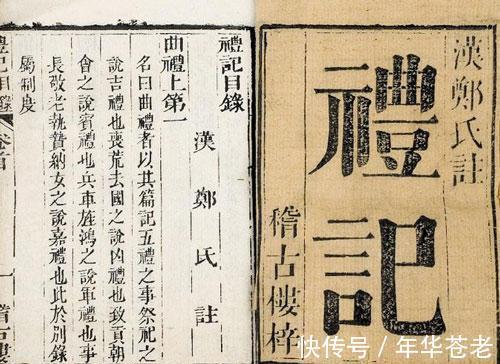 漢鄭氏註
禮記
稽古樓梓
禮記目錄
漢鄭氏註
曲禮上第一
名曰曲禮者以其篇記五禮之事祭祀之
說吉禮也喪荒去國之說凶禮也致貢朝
會之說賓禮也兵車旌鴻之說軍禮也事
長敬老執贄納女之說嘉禮也此於別錄
屬制度
禮記目錄
卷首
一
稽古樓
快传号/年华苍老